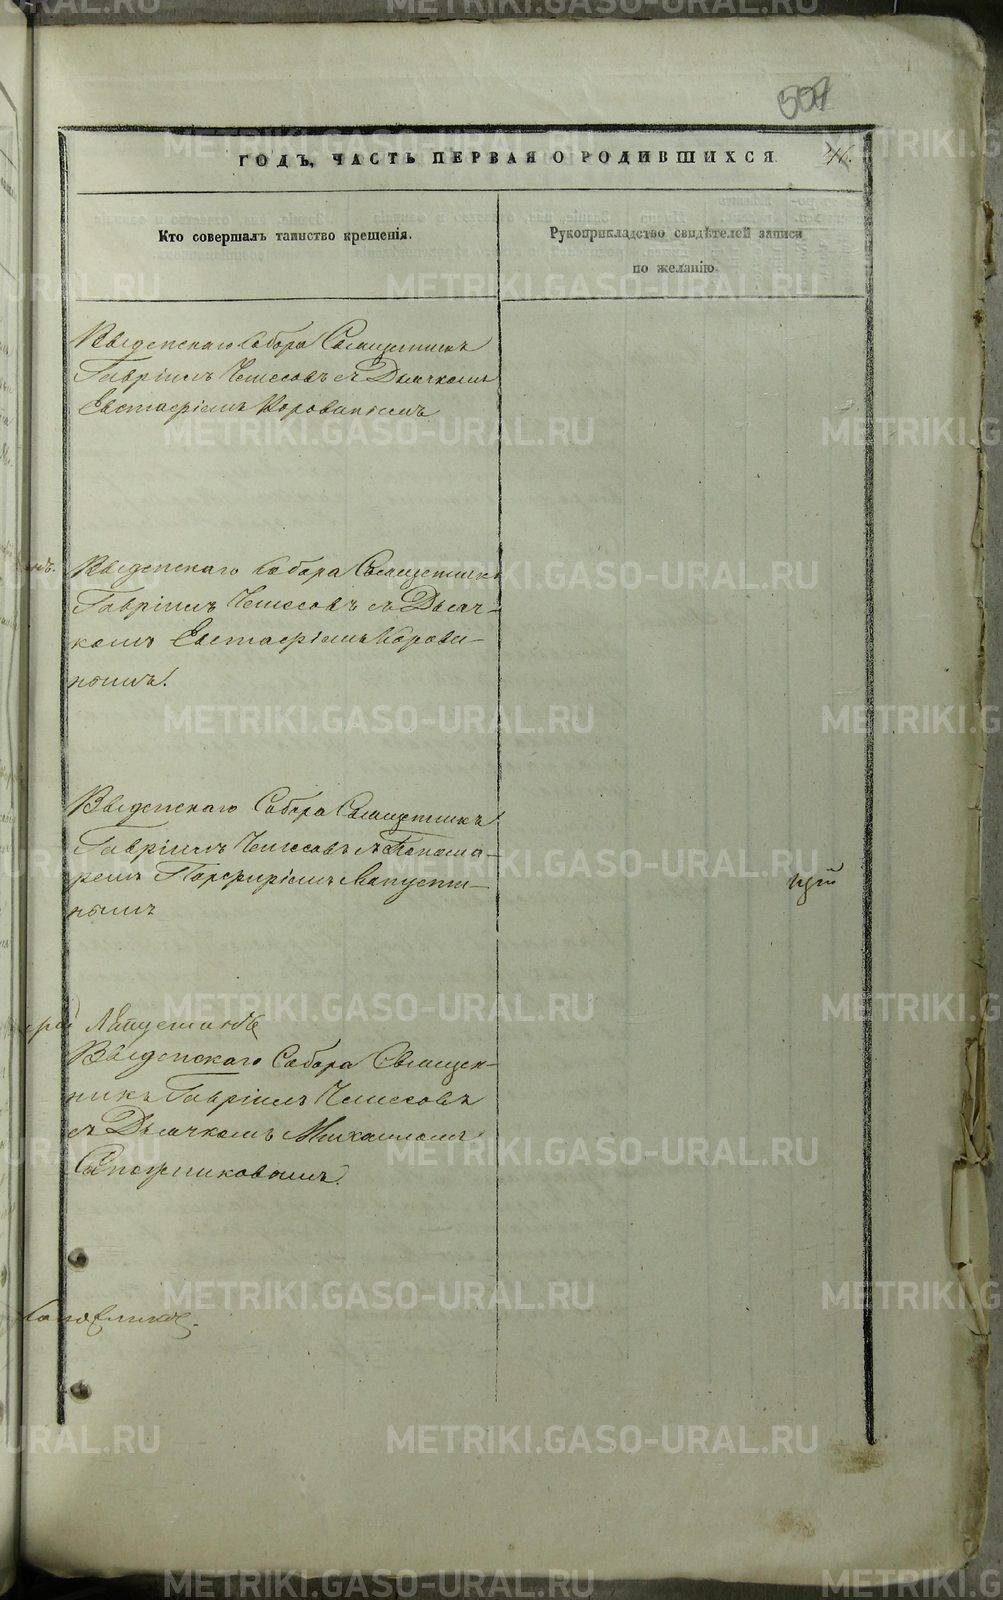 557
ГОДЪ, ЧАСТЬ ПЕРВАЯ О РОДИВШИХСЯ
Кто совершалъ таинство крещенія.
Рукоприкладство свидѣтелей записи
по желанію.
Введенскаго Собора Священникъ
Гавріилъ съ Дьячкомъ
Евстафіемъ Коровинымъ
Введенскаго Собора Священникъ
Гавріилъ съ Дьяч-
комъ Евстафіемъ Корови-
нымъ.
Введенскаго Собора Священникъ
Гавріилъ съ Понома-
ремъ Порфиріемъ Лапути-
нымъ
Введенскаго Собора Священ-
никъ Гавріилъ
съ Дьячкомъ Михаиломъ
Сапожниковымъ.
METRIKI.GASO-URAL.RU